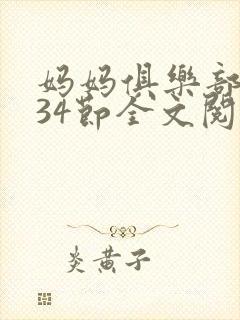 妈妈俱樂部
34節全文閱
炎黃子